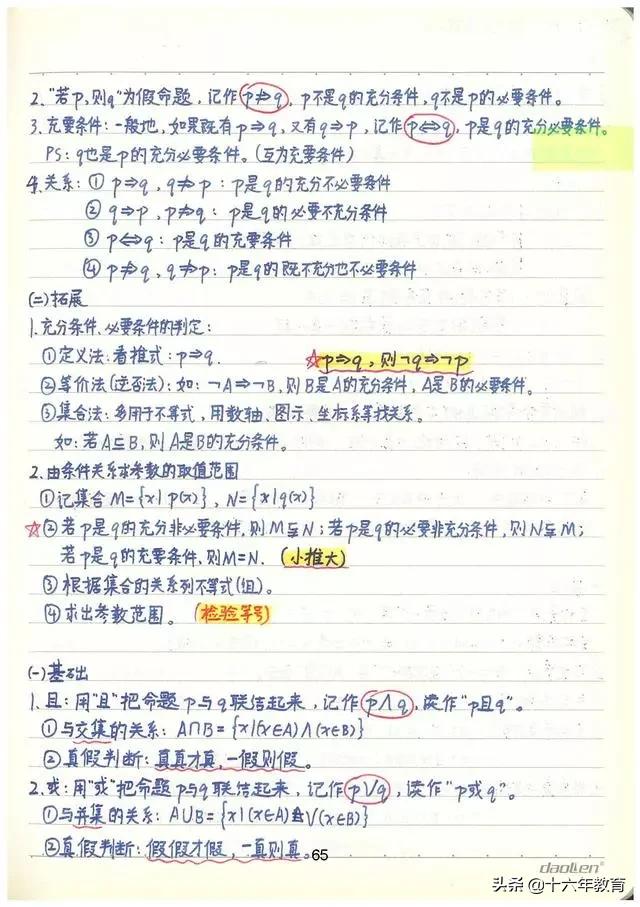 2. "若p,则q"为假命题，记作p⇏q，p不是q的充分条件，q不是p的必要条件。
3. 充要条件：一般地，如果既有p⇒q，又有q⇒p，记作p⇔q，p是q的充分必要条件。
PS：q也是p的充分必要条件。(互为充要条件)
4. 关系：① p⇒q，q⇏p：p是q的充分不必要条件
② q⇒p，p⇏q：p是q的必要不充分条件
③ p⇔q：p是q的充要条件
④ p⇏q，q⇏p：p是q的既不充分也不必要条件
(二)拓展
1. 充分条件、必要条件的判定：
①定义法：看推式：p⇒q. ☆p⇒q，则¬q⇒¬p
②等价法(逆否法)：如：¬A⇒¬B，则B是A的充分条件，A是B的必要条件。
③集合法：多用于不等式，用数轴、图示、坐标系等找关系。
如：若A⊆B，则A是B的充分条件。
2. 由条件关系求参数的取值范围
①记集合M={x|p(x)}，N={x|q(x)}
☆②若p是q的充分非必要条件，则M⫋N；若p是q的必要非充分条件，则N⫋M；
若p是q的充要条件，则M=N. (小推大)
③根据集合的关系列不等式(组)。
④求出参数范围。(检验等号)
(一)基础
1. 且：用"且"把命题p与q联结起来，记作p∧q，读作"p且q"。
①与交集的关系：A∩B={x|(x∈A)∧(x∈B)}
②真假判断：真真才真，一假则假。
2. 或：用"或"把命题p与q联结起来，记作p∨q，读作"p或q"。
①与并集的关系：A∪B={x|(x∈A)∨(x∈B)}
②真假判断：假假才假，一真则真。65
daolien®
头条@十六年教育